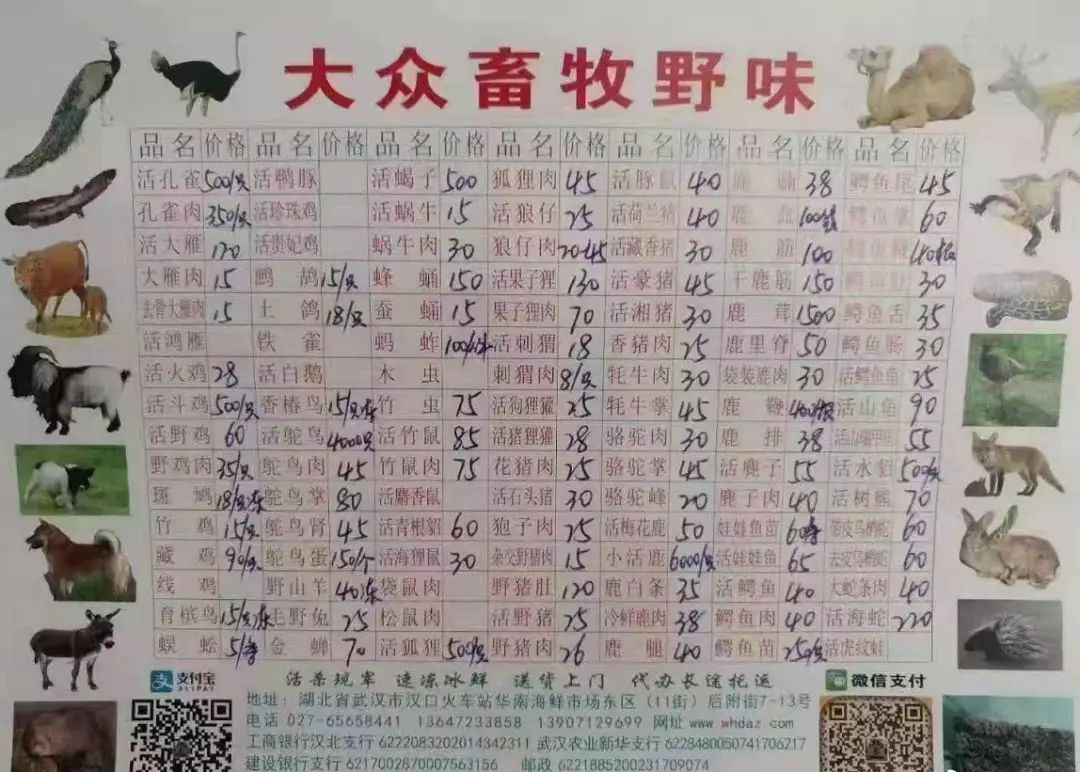 大众畜牧野味
品名 价格 品名 价格 品名 价格 品名 价格 品名 价格 品名 价格 品名 价格
活孔雀 500/只 活鸭豚 活蝎子 500 狐狸肉 45 活豚鼠 40 38 鳄鱼尾 45
孔雀肉 350/只 活珍珠鸡 活蜗牛 15 活狼仔 25 活荷兰猪 40 鹿 鳄鱼掌 60
活大雁 120 活贵妃鸡 蜗牛肉 30 狼仔肉 20-45 活藏香猪 30 鹿筋 100 鳄鱼
大雁肉 15 鹧鸪 15/只 蜂蛹 150 活果子狸 130 活豪猪 45 干鹿筋 150 鳄鱼肚 30
去骨大雁肉 15 土鸽 18/只 蚕蛹 15 果子狸肉 70 活湘猪 30 鹿茸 1500 鳄鱼舌 35
活鸿雁 铁雀 蚂蚱 活刺猬 18 香猪肉 25 鹿里脊 50 鳄鱼肠 30
活火鸡 28 活白鹅 木虫 刺猬肉 8/只 牦牛肉 30 袋装鹿肉 30 活鳄鱼龟 25
活斗鸡 500/只 香椿鸟 15/只冻 竹虫 75 活狗狸獾 25 牦牛掌 45 鹿鞭 活山龟 90
活野鸡 60 活鸵鸟 4000只 活竹鼠 85 活猪狸獾 28 骆驼肉 30 鹿排 38 55
野鸡肉 35/只 鸵鸟肉 45 竹鼠肉 75 花猪肉 25 骆驼掌 45 活麂子 55 活水貂 500/只
斑鸠 18/只冻 鸵鸟掌 80 活麝香鼠 活石头猪 30 骆驼峰 20 麂子肉 40 活树熊 70
竹鸡 15/只 鸵鸟肾 45 活青根貂 60 狍子肉 25 活梅花鹿 50 娃娃鱼苗 带皮乌梢蛇 60
藏鸡 90/只 鸵鸟蛋 150/个 活海狸鼠 30 杂交野猪肉 15 小活鹿 6000/只 活娃娃鱼 65 去皮乌梢蛇 60
线鸡 野山羊 40冻 袋鼠肉 野猪肚 120 鹿白条 35 活鳄鱼 40 大蛇条肉 40
育槟鸟 15/只冻 毛野兔 25 松鼠肉 活野猪 25 冷鲜鹿肉 38 鳄鱼肉 40 活海蛇 220
蜈蚣 金蝉 70 活狐狸 500/只 野猪肉 26 鹿腿 40 鳄鱼苗 250/只 活虎纹蛙
支付宝
ALIPAY
活杀现宰 速冻冰鲜 送货上门 代办长途托运
微信支付
地址：湖北省武汉市汉口火车站华南海鲜市场东区（11街）后附街7-13号
电话 027-65658441 13647233858 13907129699 网址 www whdaz com
工商银行汉北支行 6222083202014342311 武汉农业新华支行 6228480050741706217
建设银行支行 6217002870007563156 邮政 6221885200231709074